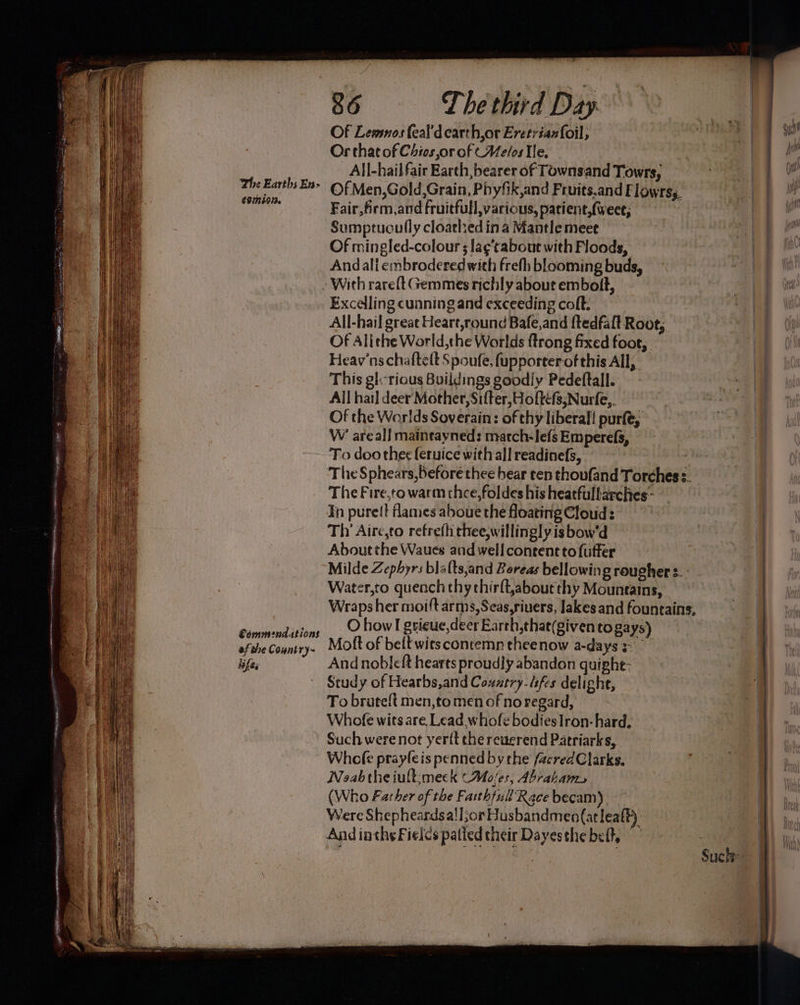 86 The third Day.
Of Lemnos ſeal'd earth, or Eretrian ſoil,
Or that of Chios, or of Melos Ile.
All-hail fair Earth, bearer of Towns and Towrs,
The Earths En-
comion.
Of Men, Gold, Grain, Phyſik, and Fruits, and Flowrs,
Fair, firm, and fruitfull, various, patient, ſweet,
Sumptuouſly cloathed in a Mantle meet
Of mingled-colour; lac't about with Floods,
And all embrodered with freſh blooming buds,
With rareſt Gemmes richly about emboſt,
Excelling cunning and exceeding coſt.
All-hail great Heart, round Baſe, and ſtedfaſt Root,
Of All the World, the Worlds ſtrong fixed foot,
Heav'ns chaſteſt Spouſe, ſupporter of this All,
This glorious Buildings goodly Pedeſtall.
All hail deer Mother, Siſter, Hoſteſs, Nurſe,
Of the Worlds Soverain: of thy liberall purſe,
W' are all maintayned: match-leſs Empereſs,
To doo thee ſeruice with all readineſs,
The Sphears, before thee bear ten thouſand Torches:
The Fire, to warm thee, foldes his heatfull arches
In pureſt flames aboue the floating Cloud:
Th' Aire, to refreſh thee, willingly is bow'd
About the Waues and well content to ſuffer
Milde Zephyrs blaſts, and Boreas bellowing rougher:
Water, to quench thy thirſt, about thy Mountains,
Wraps her moiſt arms, Seas, riuers, lakes and fountains.
Commendations
of the Country-
life.
O how I grieue, deer Earth, that (given to gays)
Moſt of beſt wits contemn thee now a-days:
And nobleſt hearts proudly abandon quight
Study of Hearbs, and Country-lifes delight,
To bruteſt men, to men of no regard,
Whoſe wits are Lead, whoſe bodies Iron-hard.
Such were not yerſt the reuerend Patriarks,
Whoſe prayſe is penned by the ſacred Clarks.
Noah the iuſt, meek Moſes, Abraham
(Who Father of the Faithfull Race becam)
Were Shepheards all, or Husbandmen (at leaſt)
And in the Fields paſſed their Dayes the beſt,
Such